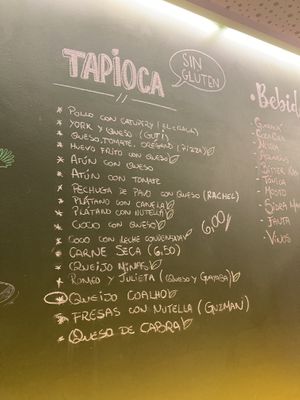 TAPIOCA
SIN
GLUTEN
* POLLO CON CATUPIRY (EL CRACK)
* YORK Y QUESO (GUTI)
* QUESO, TOMATE, ORÉGANO (PIZZA)
* HUEVO FRITO CON QUESO
* ATÚN CON QUESO
* ATÚN CON TOMATE
* PECHUGA DE PAVO CON QUESO (RACHEL)
* PLÁTANO CON CANELA
* PLÁTANO CON NUTELLA
* COCO CON QUESO
* COCO CON LECHE CONDENSADA
* CARNE SECA (6.50)
* QUEIJO MINAS
* ROMEO Y JULIETA (QUESO Y GUAYABA)
* QUEIJO COALHO
* FRESAS CON NUTELLA (GUZMAN)
* QUESO DE CABRA
6,00
Bebid
- GUARANÁ
- NESTEA
- AQUARIUS
- BITTER KAS
- TÓNICA
- MOSTO
- SIDRA
- FANTA
- VINOS